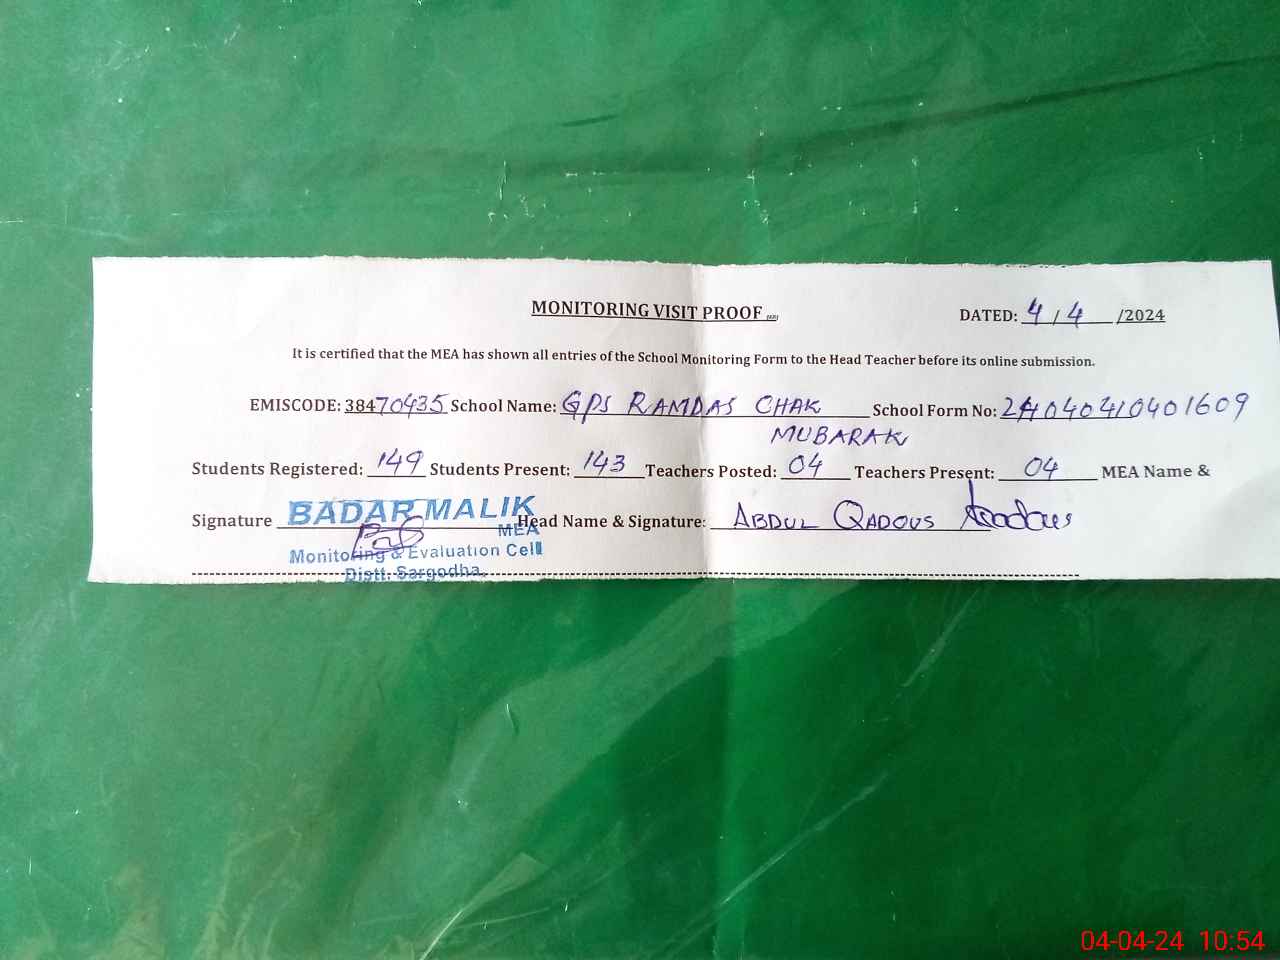 MONITORING VISIT PROOF
DATED: 4/4/2024
It is certified that the MEA has shown all entries of the School Monitoring Form to the Head Teacher before its online submission.
EMISCODE: 38470435 School Name: GPS RAMDAS CHAK School Form No: 24040410401609
MUBARAK
Students Registered: 149 Students Present: 143 Teachers Posted: 04 Teachers Present: 04 MEA Name &
Signature BADAR MALIK Head Name & Signature: ABDUL QADOUS
MEA
Monitoring & Evaluation Cell
Distt. Sargodha.
04-04-24 10:54